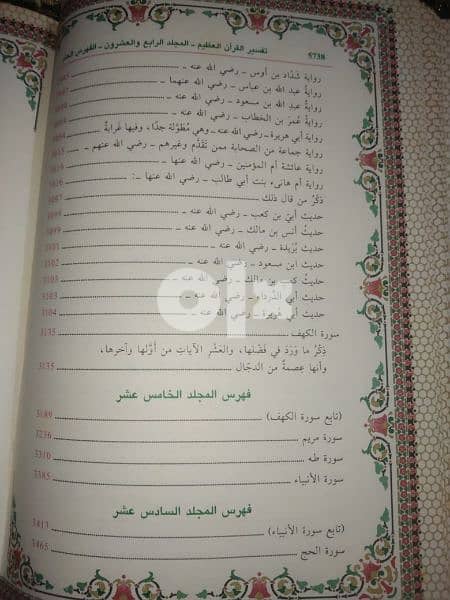 5738 تفسير القرآن العظيم ـ المجلد الرابع والعشرون ـ الفهرس
رواية شدّاد بن أوس ـ رضي الله عنه ـ
رواية عبد الله بن عباس ـ رضي الله عنهما ـ
رواية عبد الله بن مسعود ـ رضي الله عنه ـ
رواية عمر بن الخطاب ـ رضي الله عنه ـ
رواية أبي هريرة ـ رضي الله عنه ـ وهي مُطَوَّلة جدًا، وفيها غرابةٌ
رواية جماعة من الصحابة ممن تَقَدَّم وغيرهم ـ رضي الله عنهم ـ
رواية عائشة أم المؤمنين ـ رضي الله عنها ـ
رواية أم هانىء بنت أبي طالب ـ رضي الله عنها ـ: 3096
ذِكْرُ من قال ذلك 3097
حديث أبيّ بن كعب ـ رضي الله عنه ـ 3099
حديث أنس بن مالك ـ رضي الله عنه ـ 3099
حديث بُرَيدة ـ رضي الله عنه ـ 3101
حديث ابن مسعود ـ رضي الله عنه ـ 3102
حديث كعب بن مالك ـ رضي الله عنه ـ 3103
حديث أبي الدَّرداء ـ رضي الله عنه ـ 3103
حديث أبي هريرة ـ رضي الله عنه ـ 3104
سورة الكهف 3135
ذِكْرُ ما وَرَدَ في فَضْلها، والعَشْر الآياتِ من أوَّلها وآخرها،
وأنها عِصمةٌ من الدجّال 3135
فهرس المجلد الخامس عشر
(تابع سورة الكهف) 3189
سورة مريم 3236
سورة طه 3310
سورة الأنبياء 3385
فهرس المجلد السادس عشر
(تابع سورة الأنبياء) 3413
سورة الحج 3465
olx